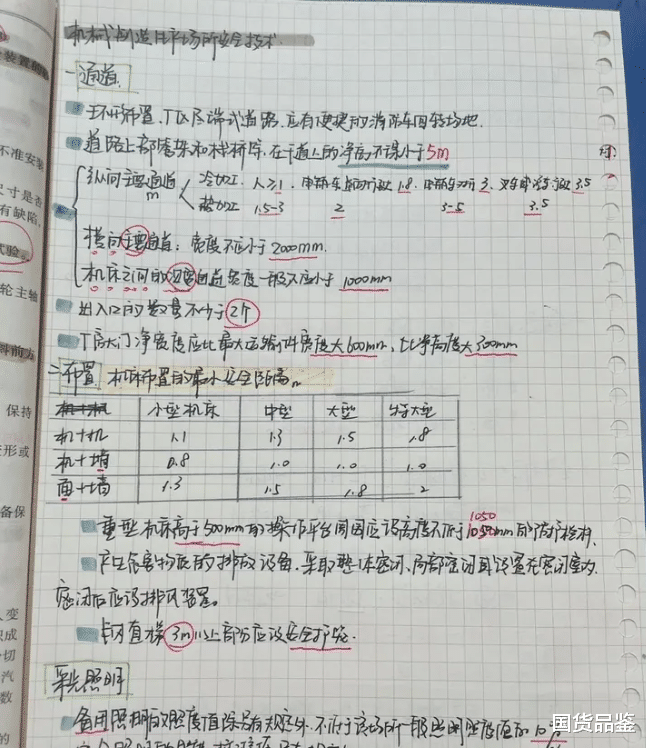 机械制造生产场所安全技术.
一.通道.
环形布置.丁以尽端式道路.应有便捷的消防车回转场地.
道路上部管架和栈桥等.在干道上的净高不得小于5m
纵向主要通道 m
冷加工. 人≥1. 1.8. 3. 3.5
热加工 1.5-3 2 3-5 3.5
横向主要通道: 宽度不应小于2000mm.
机床之间的次要通道宽度一般不应小于 1000mm
出入口的数量不少于2个
厂房大门净宽度应比最大运输件宽度大600mm, 比净高度大300mm
二.布置. 机床布置的最小安全距离m
小型机床 中型 大型 特大型
机+机 1.1 1.3 1.5 1.8
机+墙 0.8 1.0 1.0 1.0
面+墙 1.3 1.5 1.8 2
1050
重型机床高于500mm的操作平台周围应设高度不低于1050mm的防护栏杆.
产生危害物质的排放设备.采取整体密闭.局部密闭或设置在密闭室内.
密闭后应设排风装置。
钢直梯3m以上部分应设安全护笼.
采光照明
备用照明的照度值除另有规定外.不低于该场所一般照明照度值的10%
装置的
不准安装
尺寸是否
有缺陷,
试验。
轮主轴
料前方
保持
变形或
备保
人变
织成
切
汽
数
的
国货品鉴